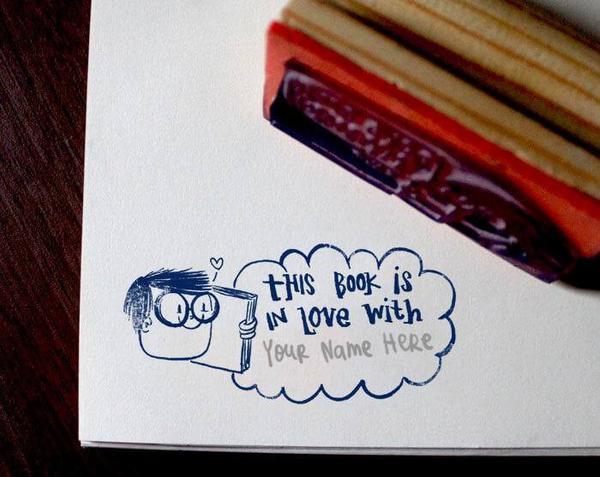 tHIS BOOK iS
IN Love with
Your Name HeRe